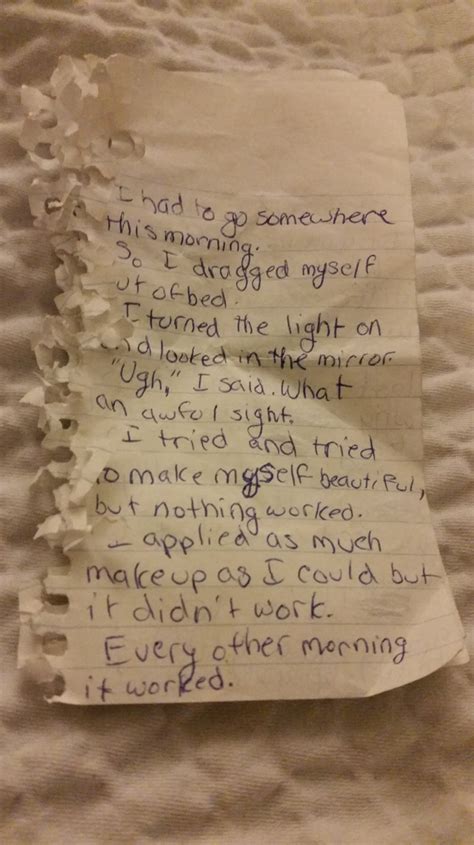 I had to go somewhere
this morning.
So I dragged myself
ut of bed.
I turned the light on
nd looked in the mirror
"Ugh," I said. What
an awful sight.
I tried and tried
to make myself beautiful,
but nothing worked.
I applied as much
makeup as I could but
it didn't work.
Every other morning
it worked.